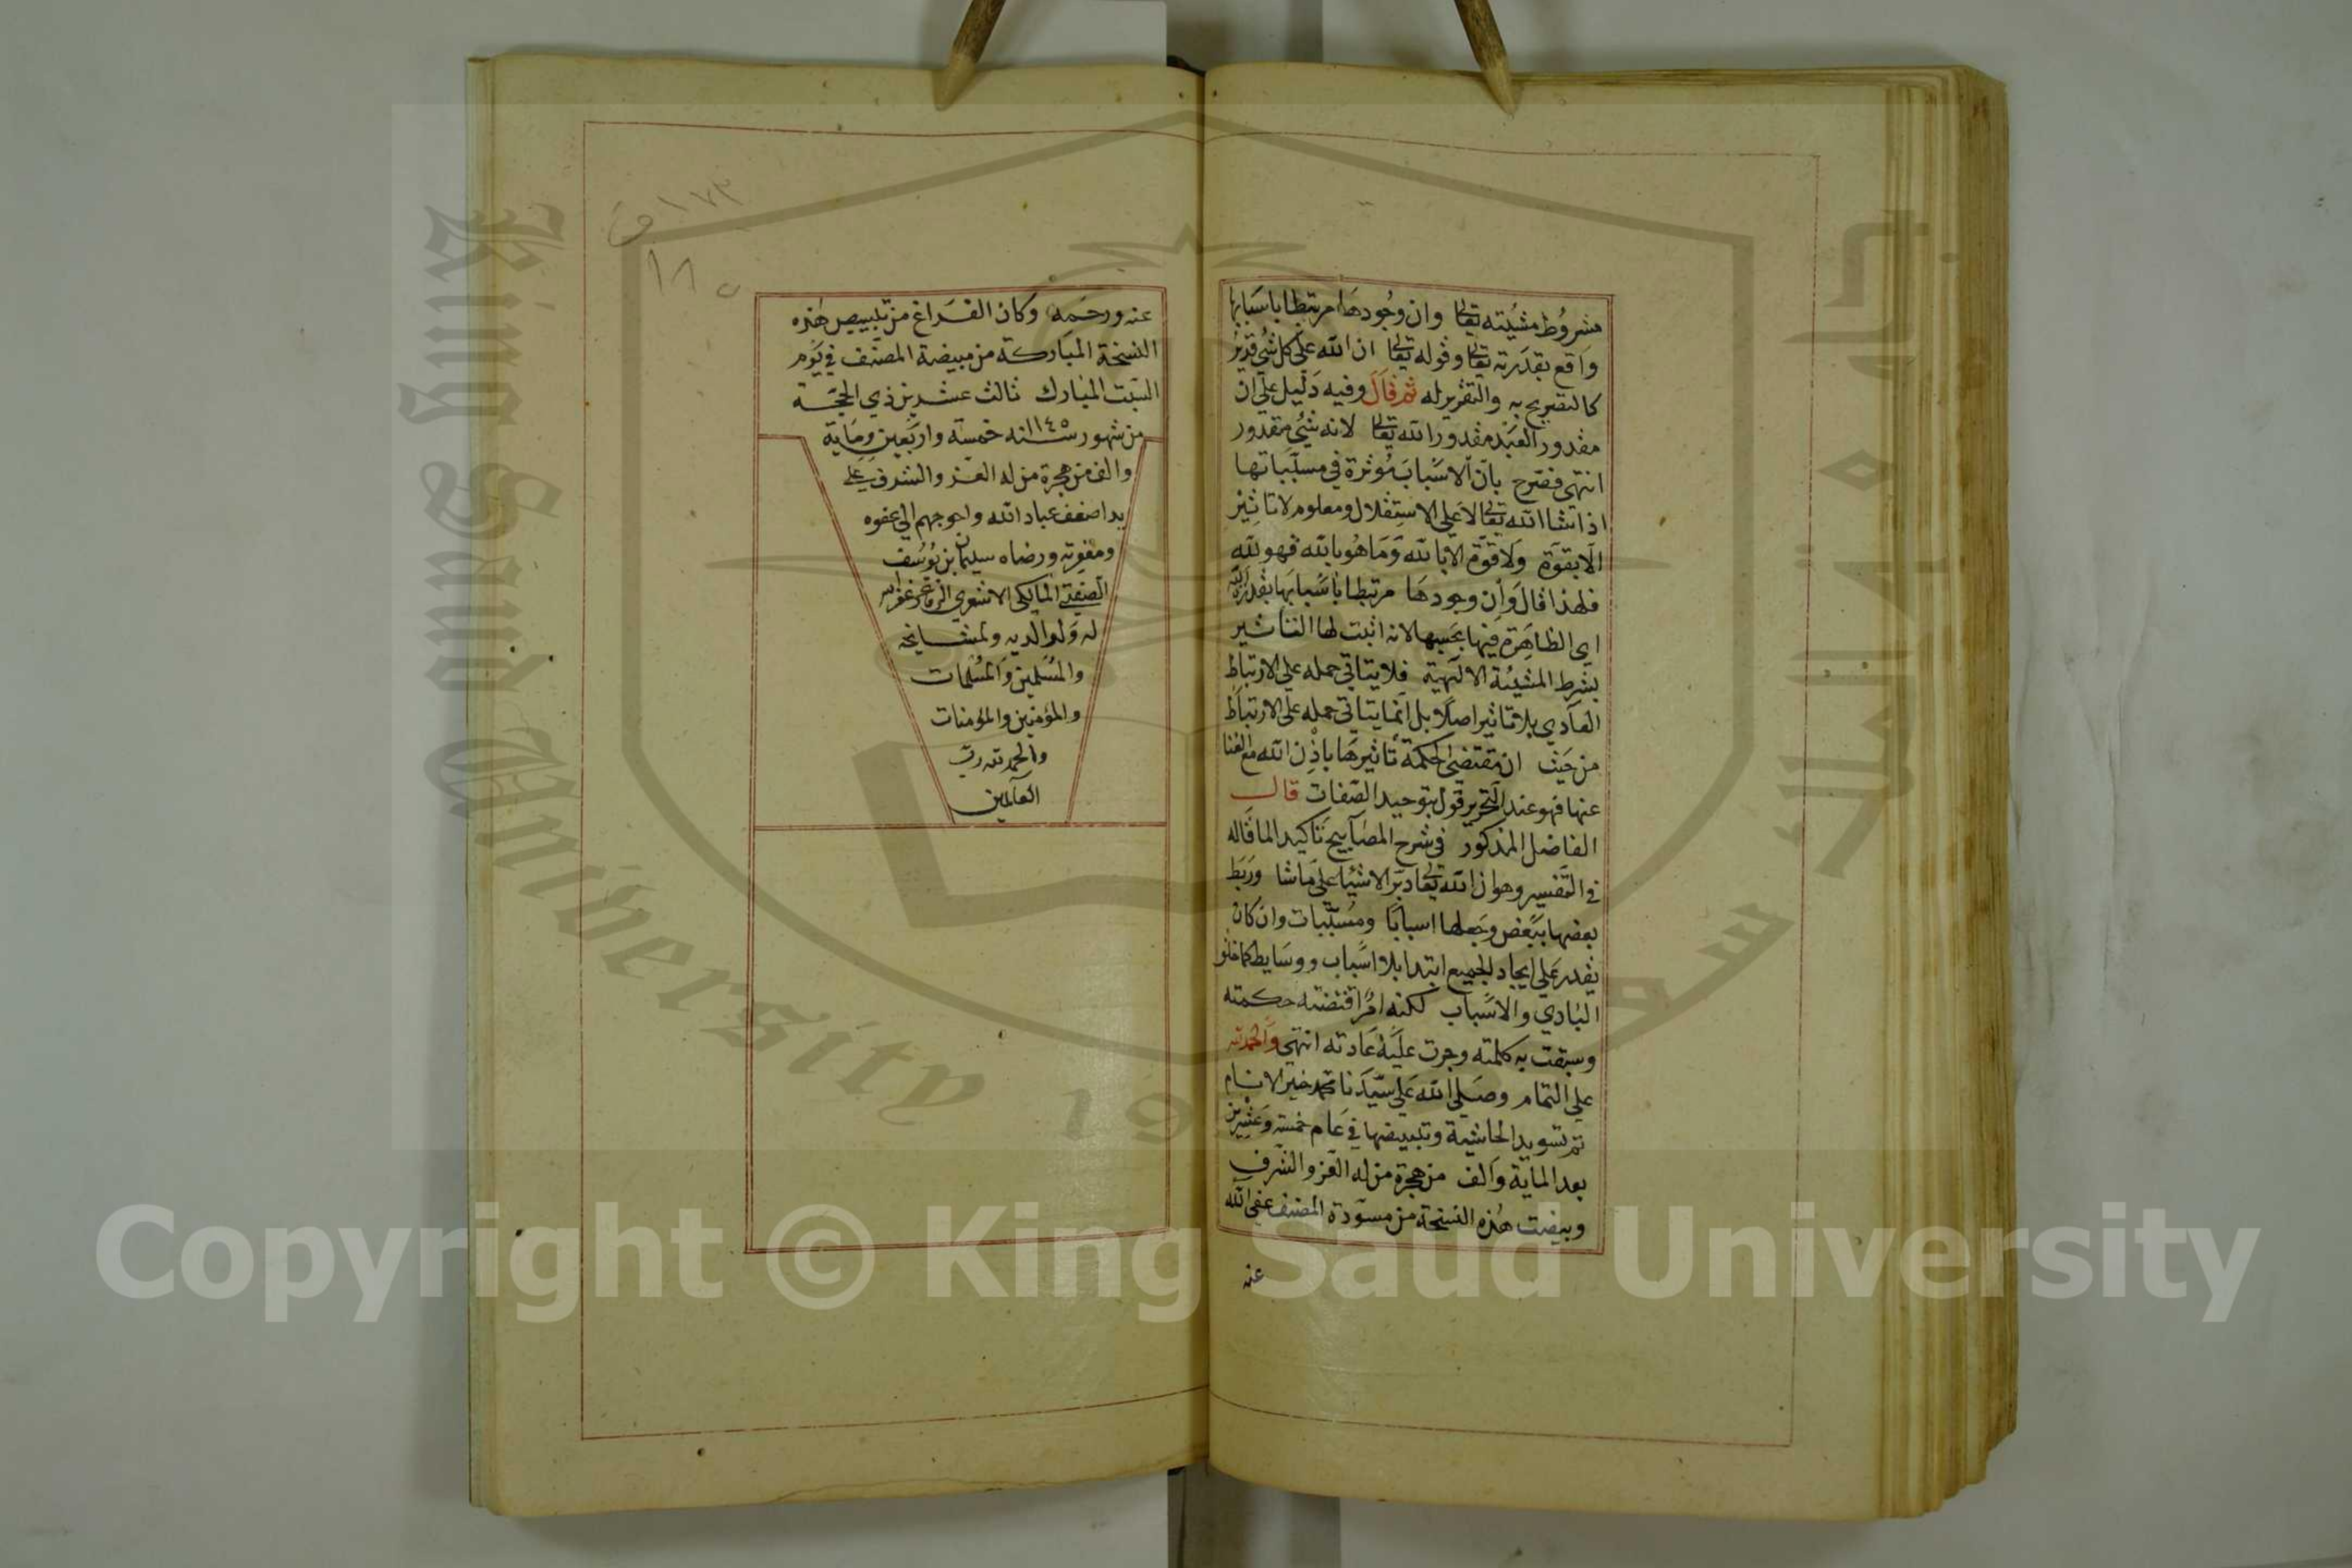 مشروط مشيئته تعالى وان وجودها مرتبطا باسبابها
واقع بقدرته تعالى وقوله تعالى ان الله على كل شئ قدير
كالتصريح به والتقرير له ثم قال وفيه دليل على ان
مقدور العبد مقدور الله تعالى لانه شئ مقدور
انتهى فصرح بان الاسباب مؤثرة في مسبباتها
اذا شا الله تعالى لا على الاستقلال ومعلوم لا تاثير
الا بقوة ولا قوة الا بالله وما هو بالله فهو لله
فلهذا قال وان وجودها مرتبطا باسبابها بقدرة الله
اي الظاهرة فيها بحسبها لانه اثبت لها التأثير
بشرط المشيئة الالهية فلا يتاتى حمله على الارتباط
العادي بلا تاثير اصلا بل انما يتاتى حمله على الارتباط
من حيث ان مقتضى الحكمة تأثيرها باذن الله مع الغنا
عنها فهو عند التحرير قول بتوحيد الصفات قال
الفاضل المذكور في شرح المصابيح تاكيد الما قاله
في التفسير وهو ان الله تعالى دبر الاشيا على ما شا وربط
بعضها ببعض وجعلها اسبابا ومسببات وان كان
يقدر على ايجاد الجميع ابتدا بلا اسباب ووسايط كما خلق
البادي والاسباب لكنه امر اقتضته حكمته
وسبقت به كلمته وجرت عليه عادته انتهى والحمد لله
على التمام وصلى الله على سيدنا محمد خير الانام
تم تسويد الحاشية وتبييضها في عام خمسة وعشرين
بعد الماية والف من هجرة من له العز والشرف
وبيضت هذه النسخة من مسودة المصنف عفى الله
عنه
عنه ورحمه وكان الفراغ من تبييض هذه
النسخة المباركة من مبيضة المصنف في يوم
السبت المبارك ثالث عشرين ذي الحجة
من شهور سنه ١١٤٥ خمسة واربعين وماية
والف من هجرة من له العز والشرف على
يد اضعف عباد الله واحوجهم الى عفوه
ومغفرته ورضاه سليمان بن يوسف
المالكي الاشعري غفر الله
له ولوالديه ولمشايخه
والمسلمين والمسلمات
والمؤمنين والمؤمنات
والحمد لله رب
العالمين
١٧٣ ق
١٨٥
Copyright © King Saud University
King Saud University 19